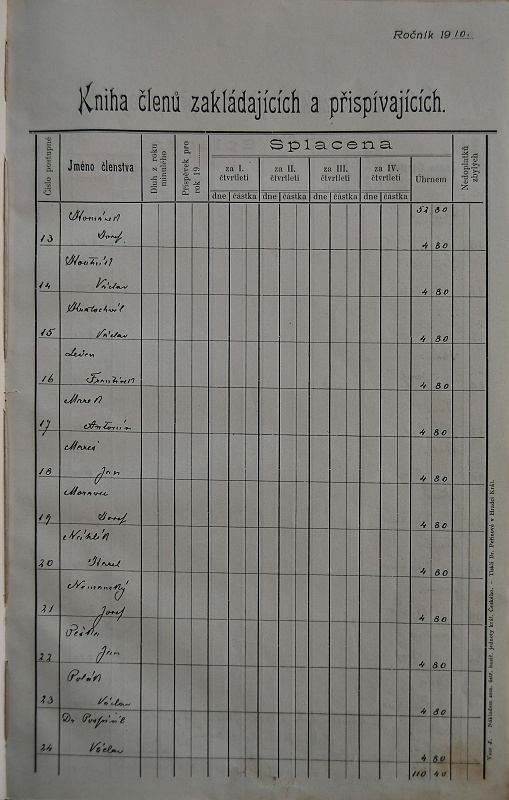 Ročník 1910.
Kniha členů zakládajících a přispívajících.
Číslo postupné
Jméno členstva
Dluh z roku minulého
Příspěvek pro rok 19
Splacena
za I. čtvrtletí
za II. čtvrtletí
za III. čtvrtletí
za IV. čtvrtletí
Úhrnem
Nedoplatků zbylých
dne částka dne částka dne částka dne částka
52 80
13 Josef 4 80
14 Václav 4 80
Kratochvíl
15 Václav 4 80
16 František 4 80
Marek
17 Antonín 4 80
18 Jan 4 80
Moravec
19 Josef 4 80
20 Karel 4 80
21 Josef 4 80
22 Jan 4 80
Polák
23 Václav 4 80
Dr Pospíšil
24 Václav 4 80
110 40
Vzor J. – Nákladem ústř. hasič. jednoty král. Českého. – Tiskli Br. Peřinové v Hradci Král.